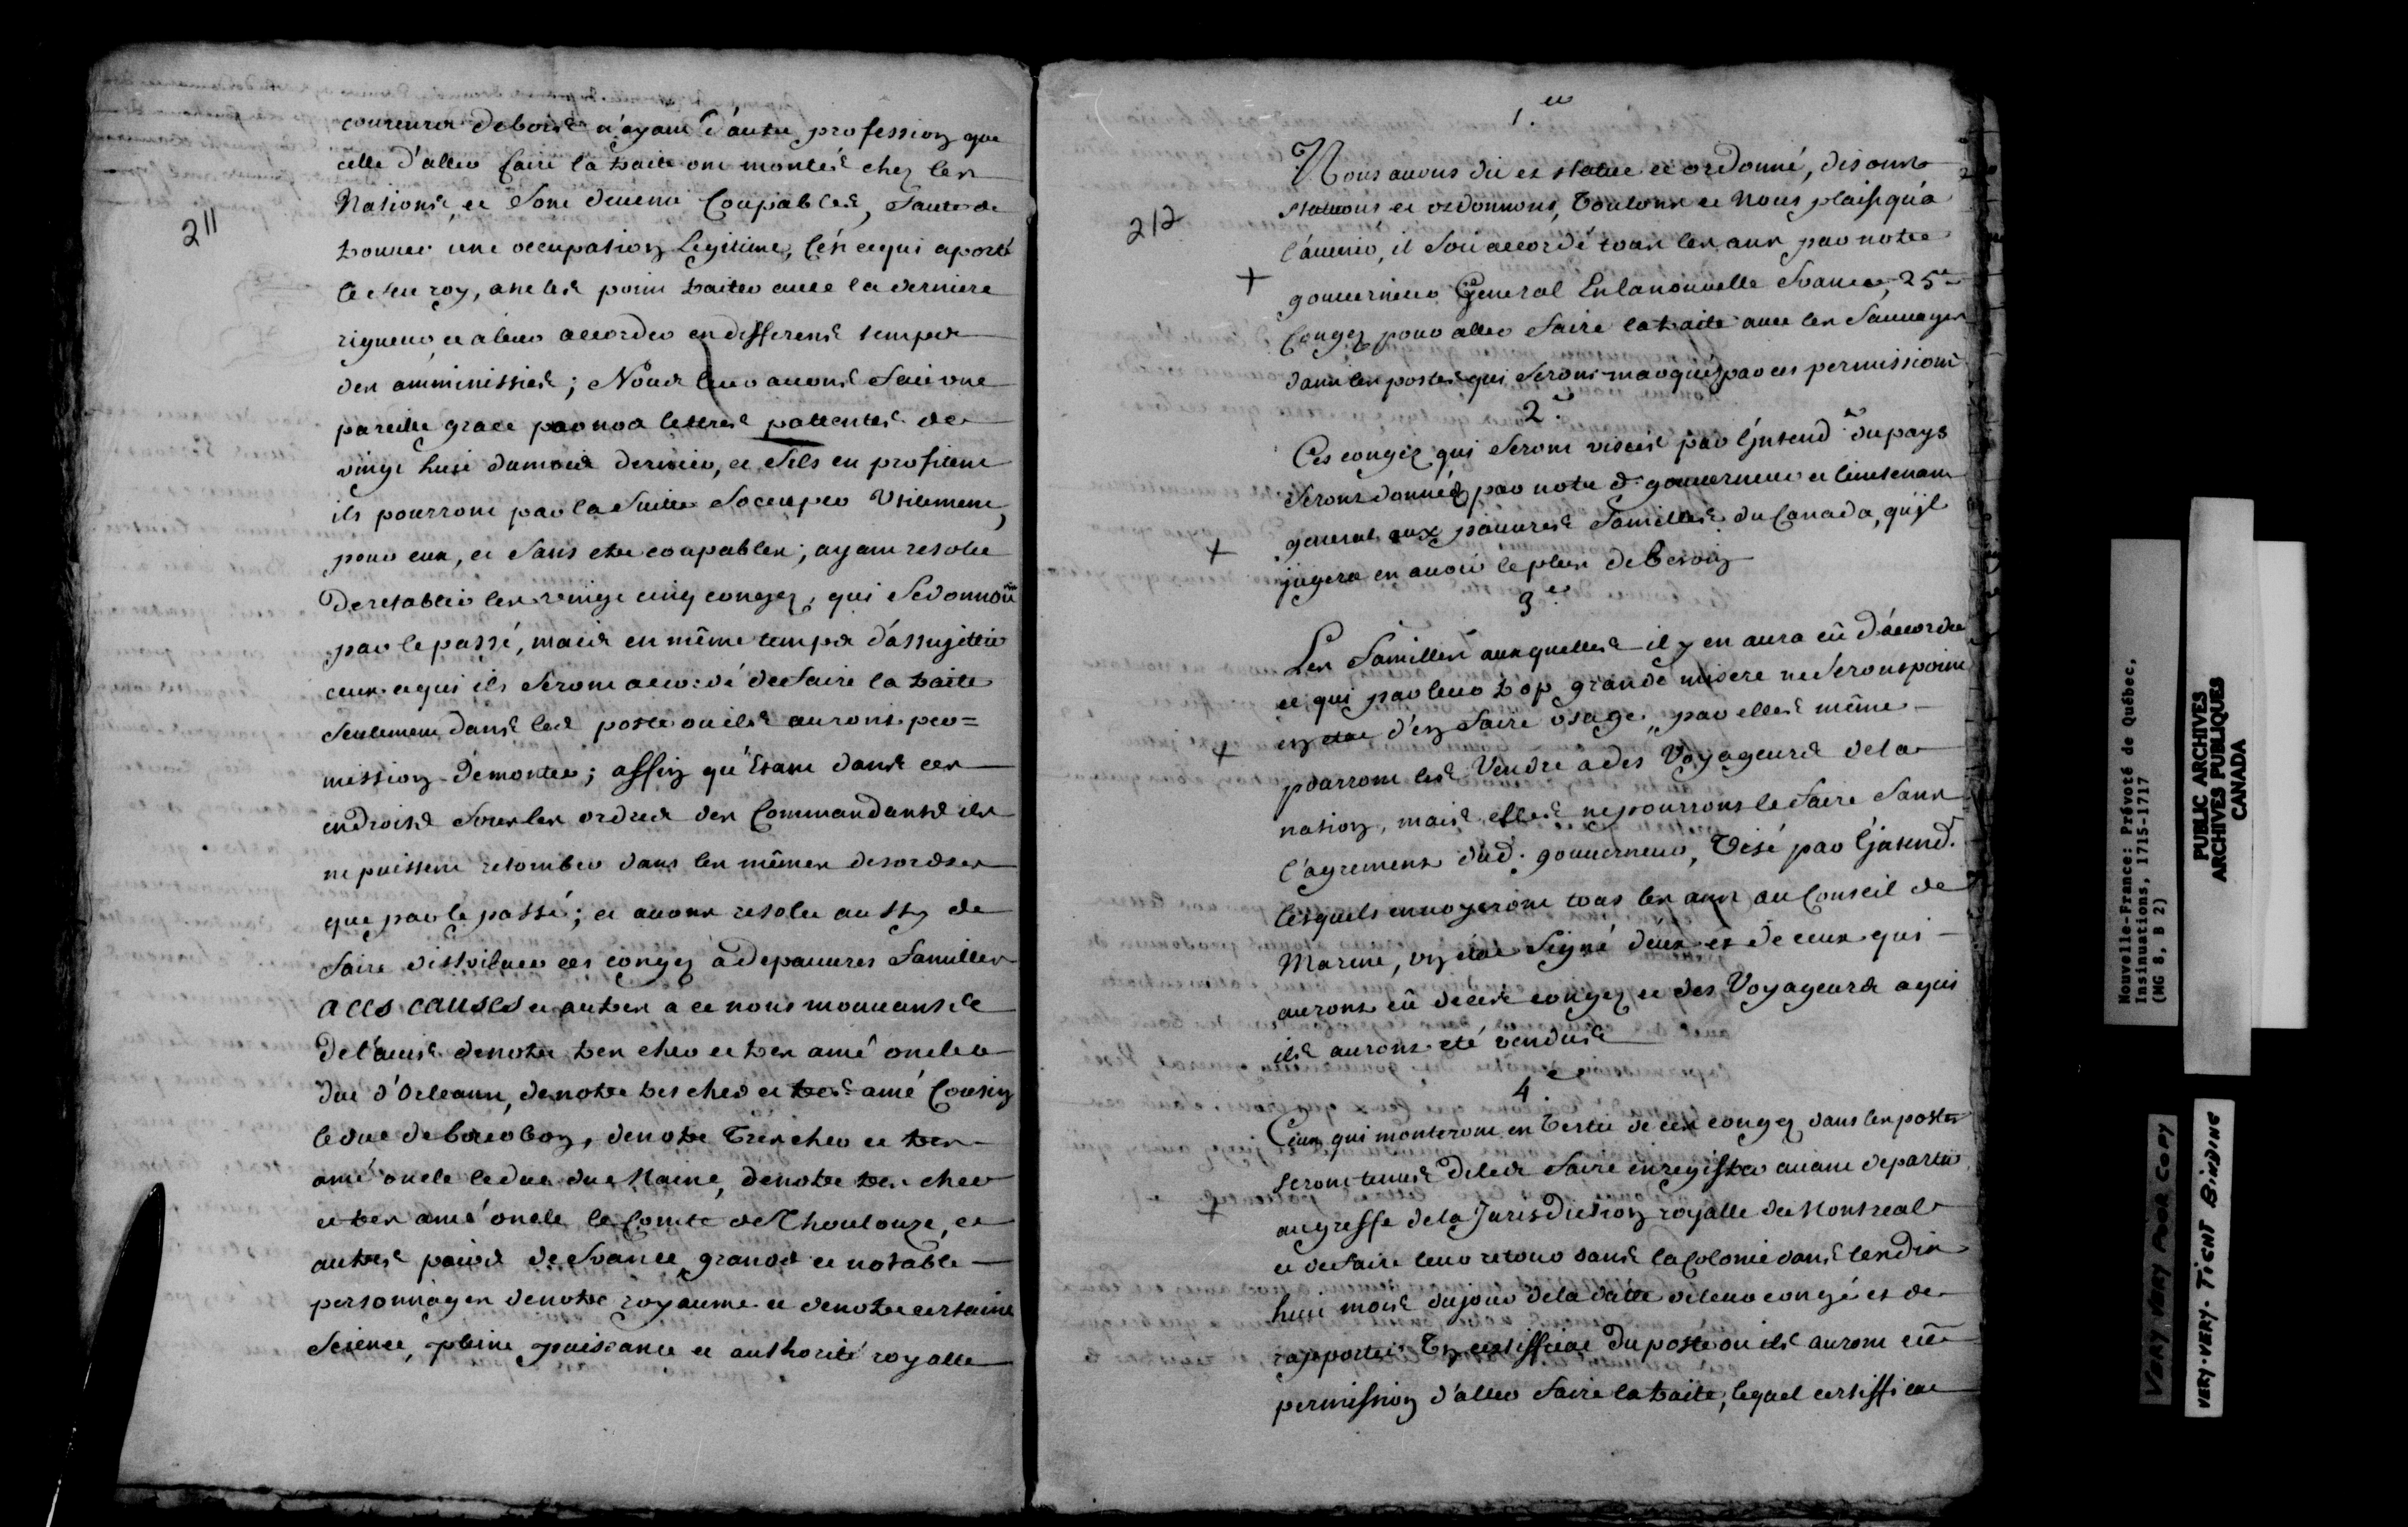 211
coureurs de bois n'ayant d'autre profession que
celle d'aller faire la traite ont montés chez les
Nations, et sont devenu Coupables, faute de
trouver une occupation Legitime, C'est ce qui a porté
le feu roy, a ne les point traiter avec la derniere
rigueur, et a leur accorder en differens temps
des amministies; Nous leur avons fait une
pareille grace par nos lettres pattentes de
vingt huit du mois dernier, et s'ils en profitent
ils pourront par la suitte s'occuper Utilement,
pour eux, et sans etre coupables; ayant resolu
De retablir les vingt cinq congez, qui se donnoient
par le passé, mais en même temps d'assujettir
ceux a qui ils seront accordé de faire la traite
seulement dans les poste ou ils auront per=
mission de monter; affin qu'Etant dans ces
endroits sous les ordres des Commandants ils
ne puissent retomber dans les mêmes desordres
que par le passé; et avons resolu aussy de
faire distribuer ces congez a de pauvres familles
A CES CAUSES et autres a ce nous mouvans de
De l'avis de notre tres cher et tres amé oncle le
duc d'Orleans, de notre tres cher et tres amé Cousin
le duc de bourbon, de notre tres cher et tres
amé oncle le duc du Maine, de notre tres cher
et tres amé oncle le Comte de Thoulouze, et
autres pairs de France, grands et notable
personnages de notre royaume et de notre certaine
science, pleine puissance et authorité royalle
212
1.er
Nous avons dit et statué et ordonné, disons
statuons et ordonnons, Voulons et Nous plaist qu'a
l'avenir, il soit accordé tous les ans par notre
+ gouverneur General En la nouvelle France, 25
Congez pour aller faire la traite avec les Sauvages
dans les postes qui seront marqués par ces permissions
2.e
Ces congez qui seront visées par l'Jntend.t du pays
seront donnéz par notre d. gouverneur et lieutenant
general aux pauvres familles du Canada, qu'jl
+ jugera en avoir le plus de besoin
3.e
Les familles auxquelles il y en aura eû d'accordé
et qui par leur trop grande misere ne seront point
en etat d'en faire usage, par elles même
+ pourront les Vendre a des Voyageurs de la
nation, mais elles ne pourront le faire sans
l'agrement dud. gouverneur, Visé par l'Jntend.t
lesquels envoyeront tous les ans au Conseil de
Marine, un état signé d'eux et de ceux qui
auront eû de ces congez et des Voyageurs a qui
ils auront eté vendus
4.e
Ceux qui monteront en Vertu de ces congez dans les postes
seront tenus de les faire enregistrer avant de partir
au greffe de la Jurisdiction royalle de Montreal
et de faire leur retour dans la Colonie dans les dix
huit mois du jour de la datte de leur congé et de
rapporter Un certifficat du poste ou ils auront eû
permission d'aller faire la traite, lequel certifficat
Nouvelle-France: Prévoté de Québec,
Insinuations, 1715-1717
(MG 8, B 2)
PUBLIC ARCHIVES
ARCHIVES PUBLIQUES
CANADA
VERY VERY POOR COPY
VERY-VERY-TIGHT BINDING